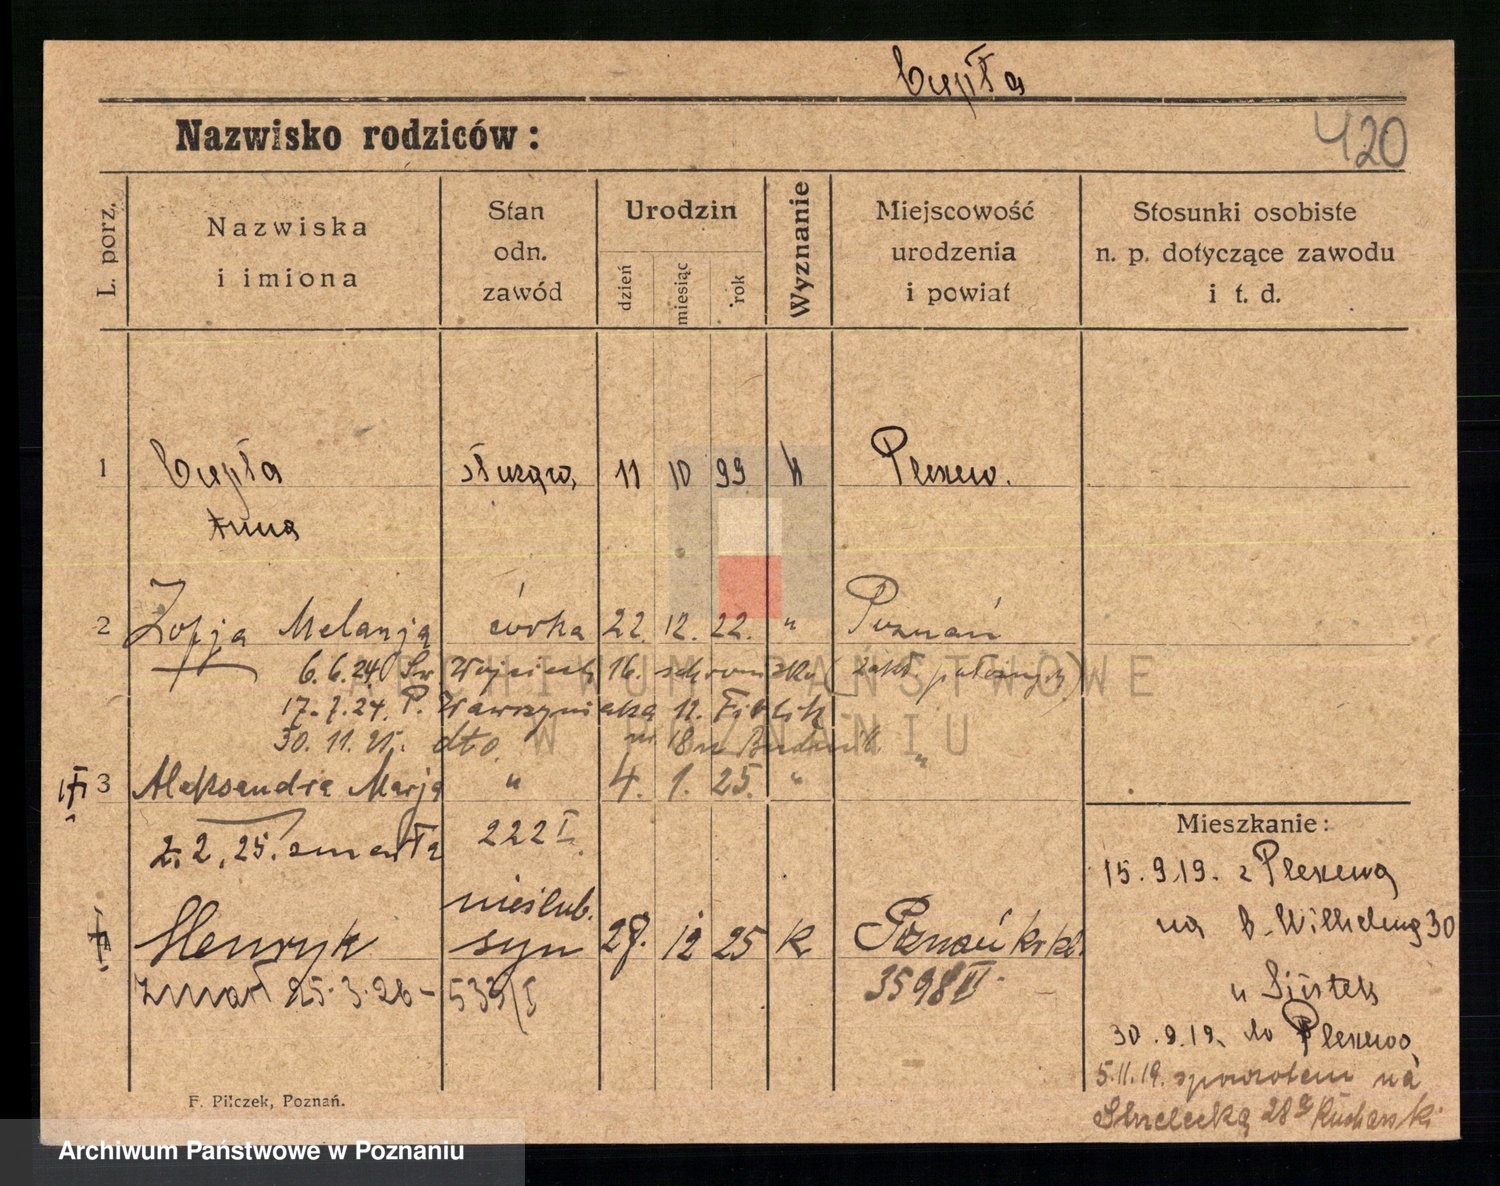 Cupła
Nazwisko rodziców:
420
L. porz.
Nazwiska
i imiona
Stan
odn.
zawód
Urodzin
dzień
miesiąc
rok
Wyznanie
Miejscowość
urodzenia
i powiat
Stosunki osobiste
n. p. dotyczące zawodu
i t. d.
1 Cupła służąca, 11 10 99 k Pleszew.
Anna
2 Zofja Melanja córka 22. 12. 22. " Poznań
6.6.24 Św Wojciech 16. schronisko (zakł. położniczy)
17.7.24. P. Wawrzyniaka 12.
30. 11. 25. dto. 18
3 Aleksandra Marja " 4. 1. 25. "
2. 2. 25. zmarła 222 I.
nieślub.
Henryk syn 28. 12 25 k Poznań
zmarł 25. 3. 26 - 533/I 3598 VI
Mieszkanie:
15. 9. 19. z Pleszewa
na b. Wilhelma 30
u
30. 9. 19. do Pleszewa
5. 11. 19. spowrotem na
Strzelecką 28 a Kucharski
F. Pilczek, Poznań.
ARCHIWUM PAŃSTWOWE
W POZNANIU
Archiwum Państwowe w Poznaniu